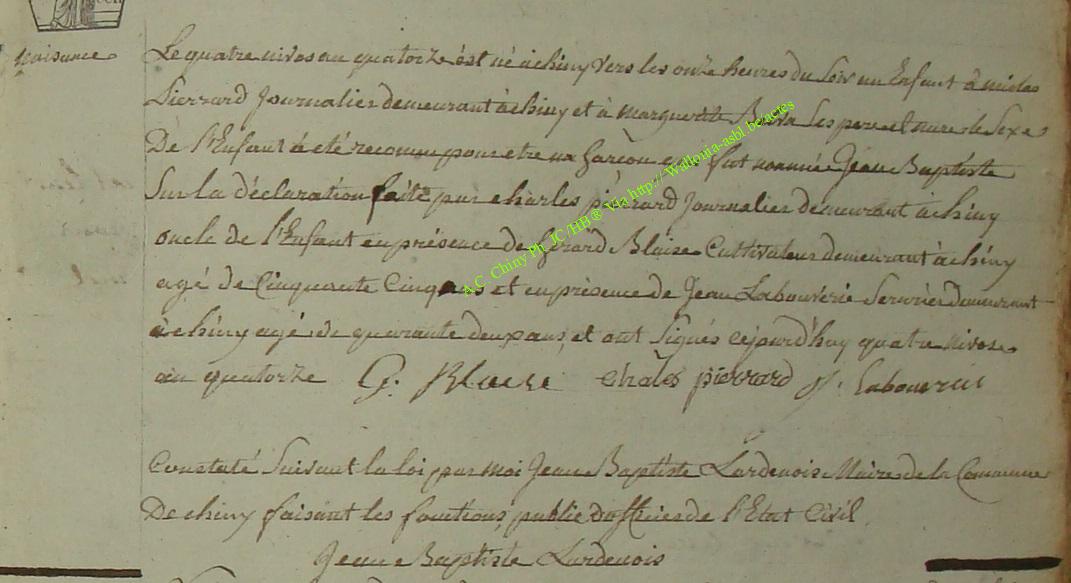 Naisance
Le quatre nivos an quatorze est né a chiny vers les onze heures du soir un Enfant à nicolas
Pierrard Journalier demeurant à chiny et à marguerite les pere et mere le Sexe
De l'Enfant à eté reconnu pour etre un garçon qui fut nommé Jean Baptiste
Sur la déclaration faite par charles pierrard Journalier demeurant a chiny
oncle de l'Enfant en présence de Gerard Blaise Cultivateur demeurant à chiny
agé de Cinquante Cinq ans et en présence de Jean Labouverie Serurier demeurant
à chiny agé de quarante deux ans, et ont signés cejourd'huy quatre nivose
an quatorze G. Blaise Chales pierrard J. labouverie
Constaté Suivant la loi par moi Jean Baptiste Lardenois Maire de la Commune
De chiny faisant les fonctions public d'officier de l'Etat Civil
Jean Baptiste Lardenois
A.C Chiny Ph JC /HB® Via http:// Wallonia-asbl.be/actes